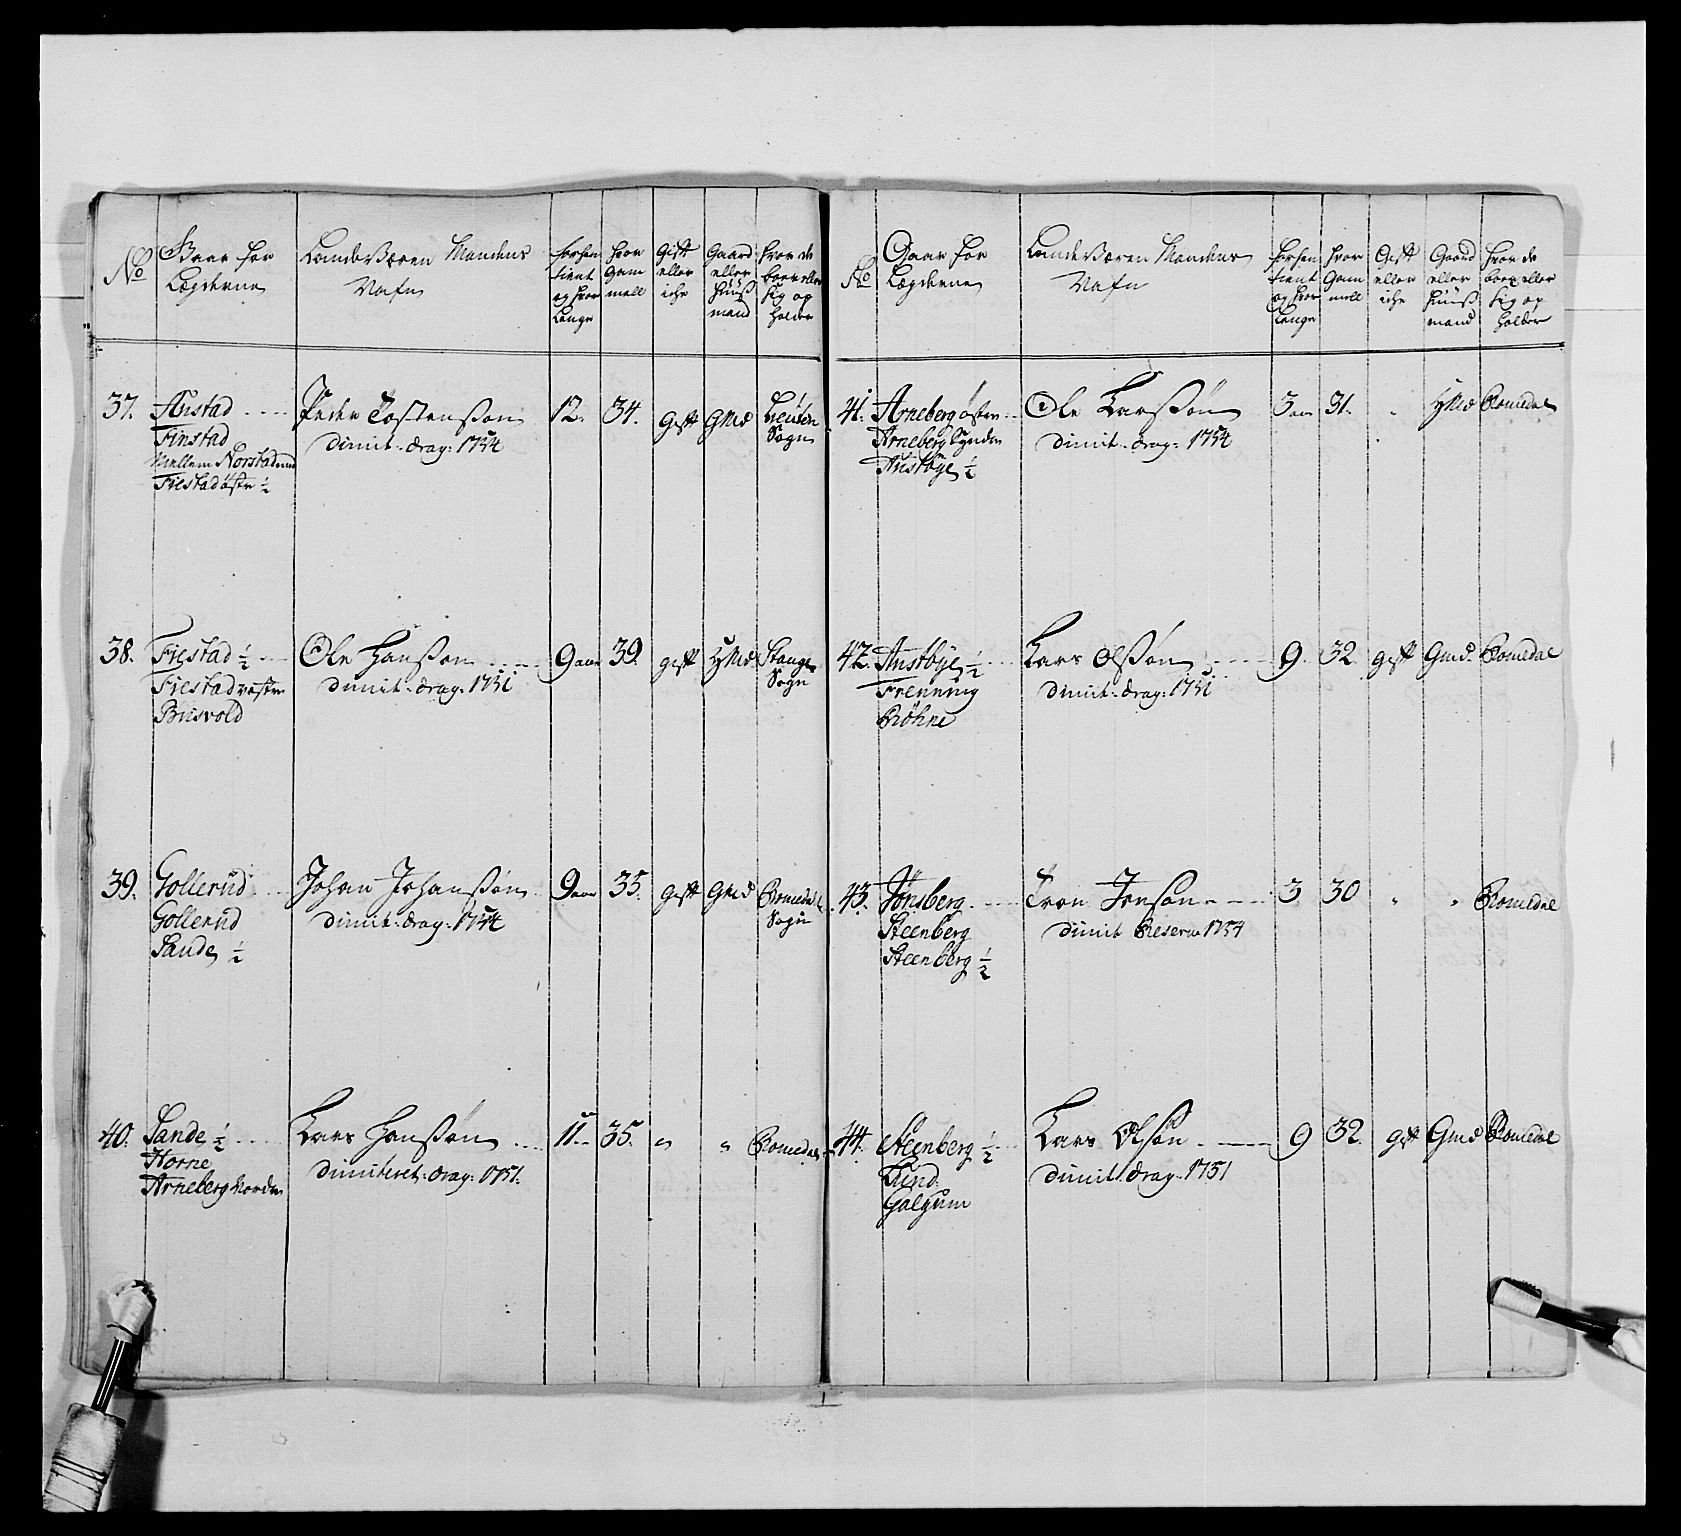 No
Gaar for
Lægderne
Landeværen Mandens
Nafn
forhen
tient
og hvor
Lenge
hvor
Gam
mell
Gift
eller
iche
Gaard
eller
Huus
mand
hvor de
boer eller
sig op
holder
37.
Austad
Finstad
Mellem Norstad
Fiestad østre ½
Peder Tostensøn
dimit. drag: 1754
12.
34.
Gift
GMd
Sogn
38.
Fiestad ½
Fiestad vestre
Brisvold
Ole Hansøn
dimit. drag: 1751
9 aar
39.
gift
HMd
Stange
Sogn
39.
Gollerud
Gollerud
Sande ½
Johan Johansøn
dimit. drag: 1754
9 aar
35.
Gift
GMd
Romedal
Sogn
40.
Sande ½
Horne
Arneberg Nordre
Lars Hansøn
dimiteret. drag: 1751.
11.
35.
"
"
Romedal
No
Gaar for
Lægderne
Landeværen Mandens
Nafn
forhen
tient
og hvor
Lenge
hvor
Gam
mell
Gift
eller
iche
Gaard
eller
Huus
mand
hvor de
boer eller
sig op
holder
41.
Arneberg østre
Arneberg Syndre
Austbye ½
Ole Larssøn
dimit. drag: 1754
3 aar
31.
"
HMd
Romedal
42.
Austbye ½
Frenning
Røhne
Lars Olssøn
dimit. drag: 1751
9.
32
gift
Gmd.
Romedal
43.
Jønsberg
Steenberg
Steenberg ½
Tron Jonsøn
dimit Reserve 1754
3
30
"
"
Romedal
44.
Steenberg ½
Lund
Galgum
Lars Olsøn
dimit. drag. 1751
9
32.
gift
Gmd
Romedal